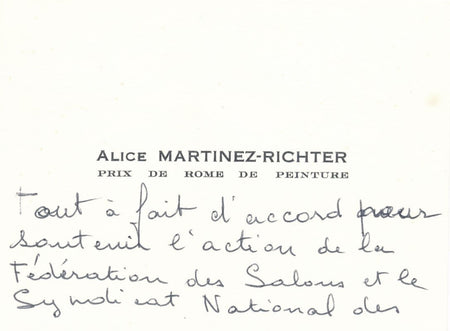 ALICE MARTINEZ-RICHTER
PRIX DE ROME DE PEINTURE
Tout à fait d'accord pour
soutenir l'action de la
Fédération des Salons et le
Syndicat National des